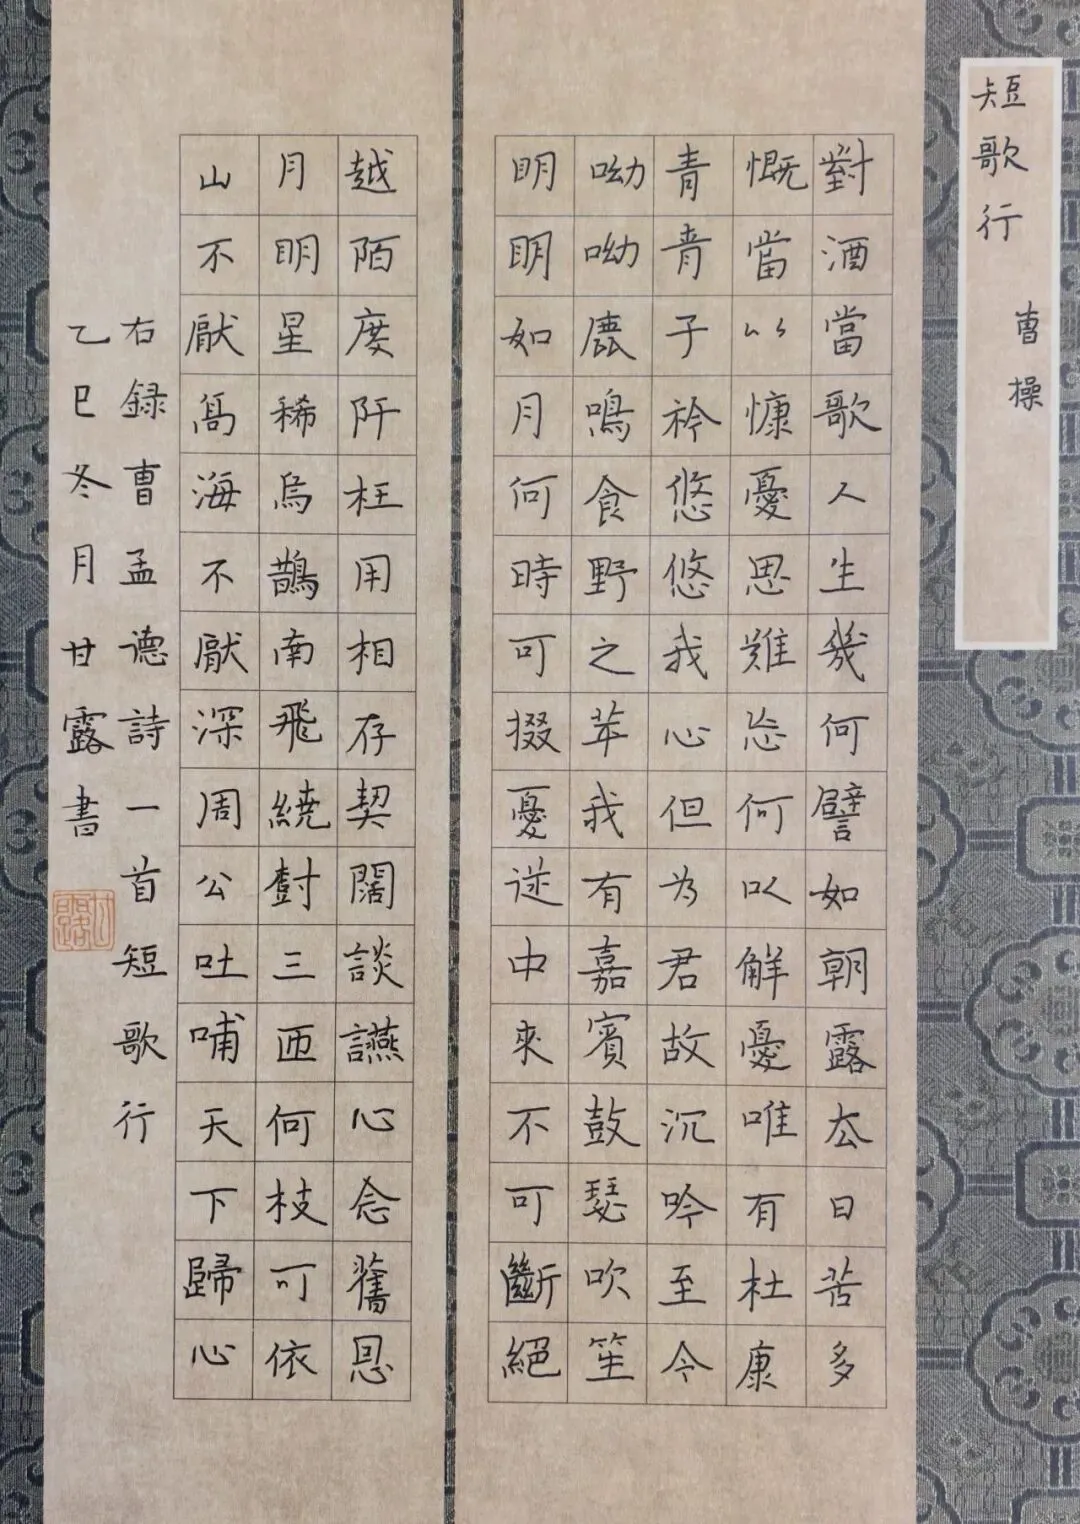 短歌行
曹操
對酒當歌人生幾何譬如朝露去日苦多
慨當以慷憂思難忘何以解憂唯有杜康
青青子衿悠悠我心但為君故沉吟至今
呦呦鹿鳴食野之苹我有嘉賓鼓瑟吹笙
明明如月何時可掇憂從中來不可斷絕
越陌度阡枉用相存契闊談讌心念舊恩
月明星稀烏鵲南飛繞樹三匝何枝可依
山不厭高海不厭深周公吐哺天下歸心
右録曹孟德詩一首短歌行
乙巳冬月甘露書
甘露